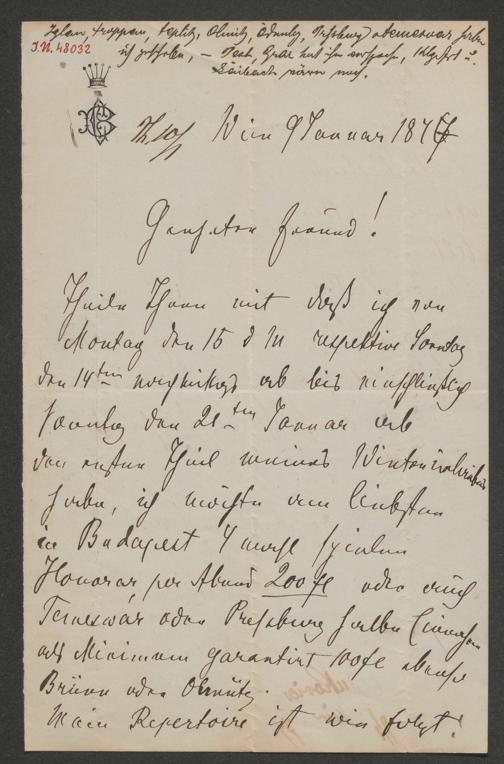 Iglau, Troppau, Teplitz, Olmütz, Ödenburg, Preßburg, Temesvár habe
ich — Pest, Graz hat
Laibach wären noch.
I.N. 48032
Wien 9 Januar 187
Geehrter Freund!
Theile Ihnen mit daß ich von
Montag den 15 d M respektive Sonntag
den 14ten ab bis einschließlich
Sonntag den 21ten Januar
den ersten Theil meines Winterurlaubes
habe, ich möchte am liebsten
in Budapest 4 mal spielen
Honorar per Abend 200 fl oder auch
Temeswár oder Preßburg halbe Einnahme
als Minimum garantirt 100 fl ebenso
Brünn oder Olmütz.
Mein Repertoire ist wie folgt: